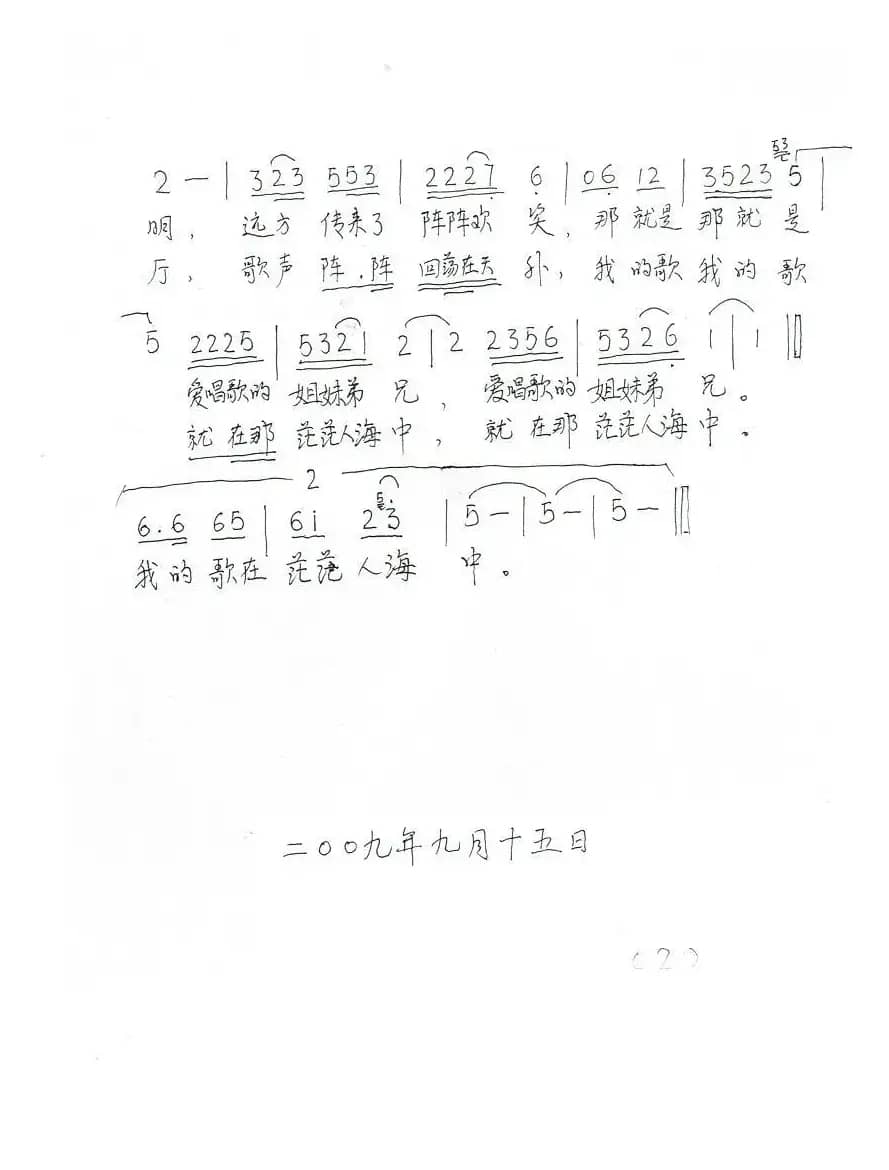 2 — | 323 553 | 2227 6 | 06 12 | 3523 53 5 |
明， 远方 传来了 阵阵欢 笑， 那 就是 那 就 是
厅， 歌声 阵．阵 回荡在天 外， 我 的歌 我 的 歌
5 2225 | 5321 2 | 2 2356 | 5326 1 | 1 ‖
爱唱歌的 姐妹弟 兄， 爱唱歌的 姐妹弟 兄。
就 在那 茫茫人海 中， 就 在那 茫茫人海 中．
2
6.6 65 | 6i 5 23 | 5 — | 5 — | 5 — ‖
我 的 歌在 茫茫 人海 中。
二〇〇九年九月十五日
(2)